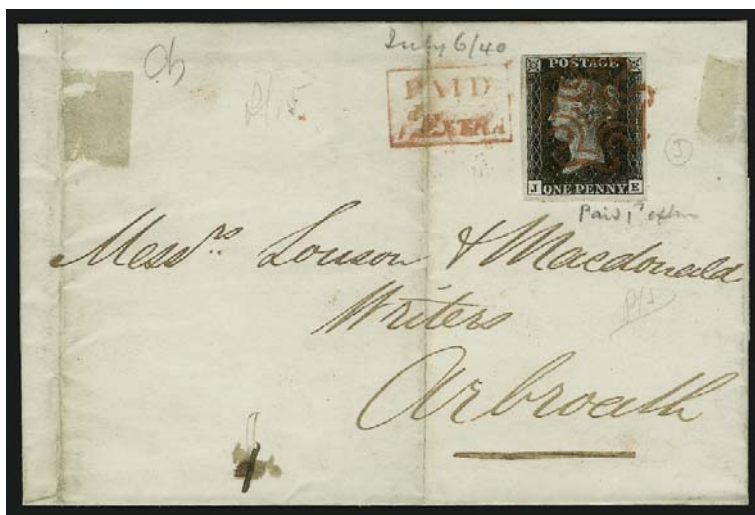 July 6/40
PAID
EXTRA
POSTAGE
J ONE PENNY E
Paid 1d extra
J
Messrs. Louson & Macdonald
Writers
Arbroath
p/s
1